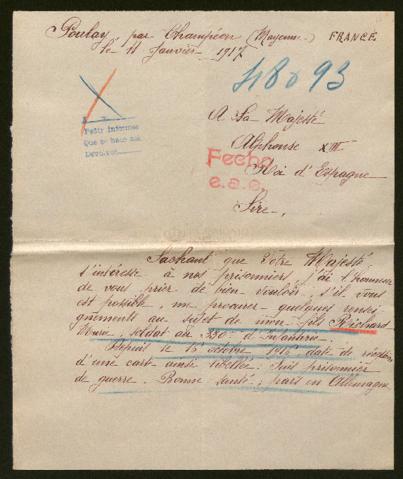 Poulay par Champéon (Mayenne) FRANCE
le 11 Janvier 1917
48093
A Sa Majesté
Alphonse XIII
Roi d'Espagne
Fecha
e.a.e.
Pedir informes
Que se hace así
Sire,
Sachant que Votre Majesté
s'intéresse à nos prisonniers j'ai l'honneur
de vous prier de bien vouloir, s'il vous
est possible me procurer quelques rensei
gnements au sujet de mon fils Richard
soldat au 330e d'infanterie.
Depuis le 15 octobre 1916 date de
d'une carte ainsi libellée. Suis prisonnier
de guerre. Bonne santé, pars en Allemagne